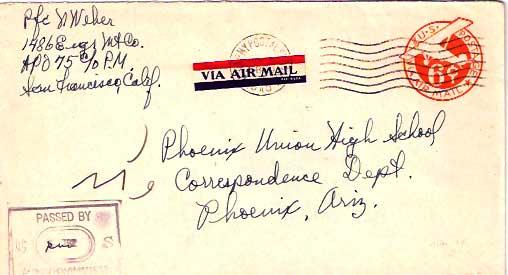 Pfc N Weher
1486 Engr Mt Co.
APO 75 C/o P.M.
San Francisco, Calif.
VIA AIR MAIL
U.S. POSTAGE
6c
AIR MAIL
Phoenix Union High School
Correspondence Dept.
Phoenix, Ariz.
PASSED BY
S